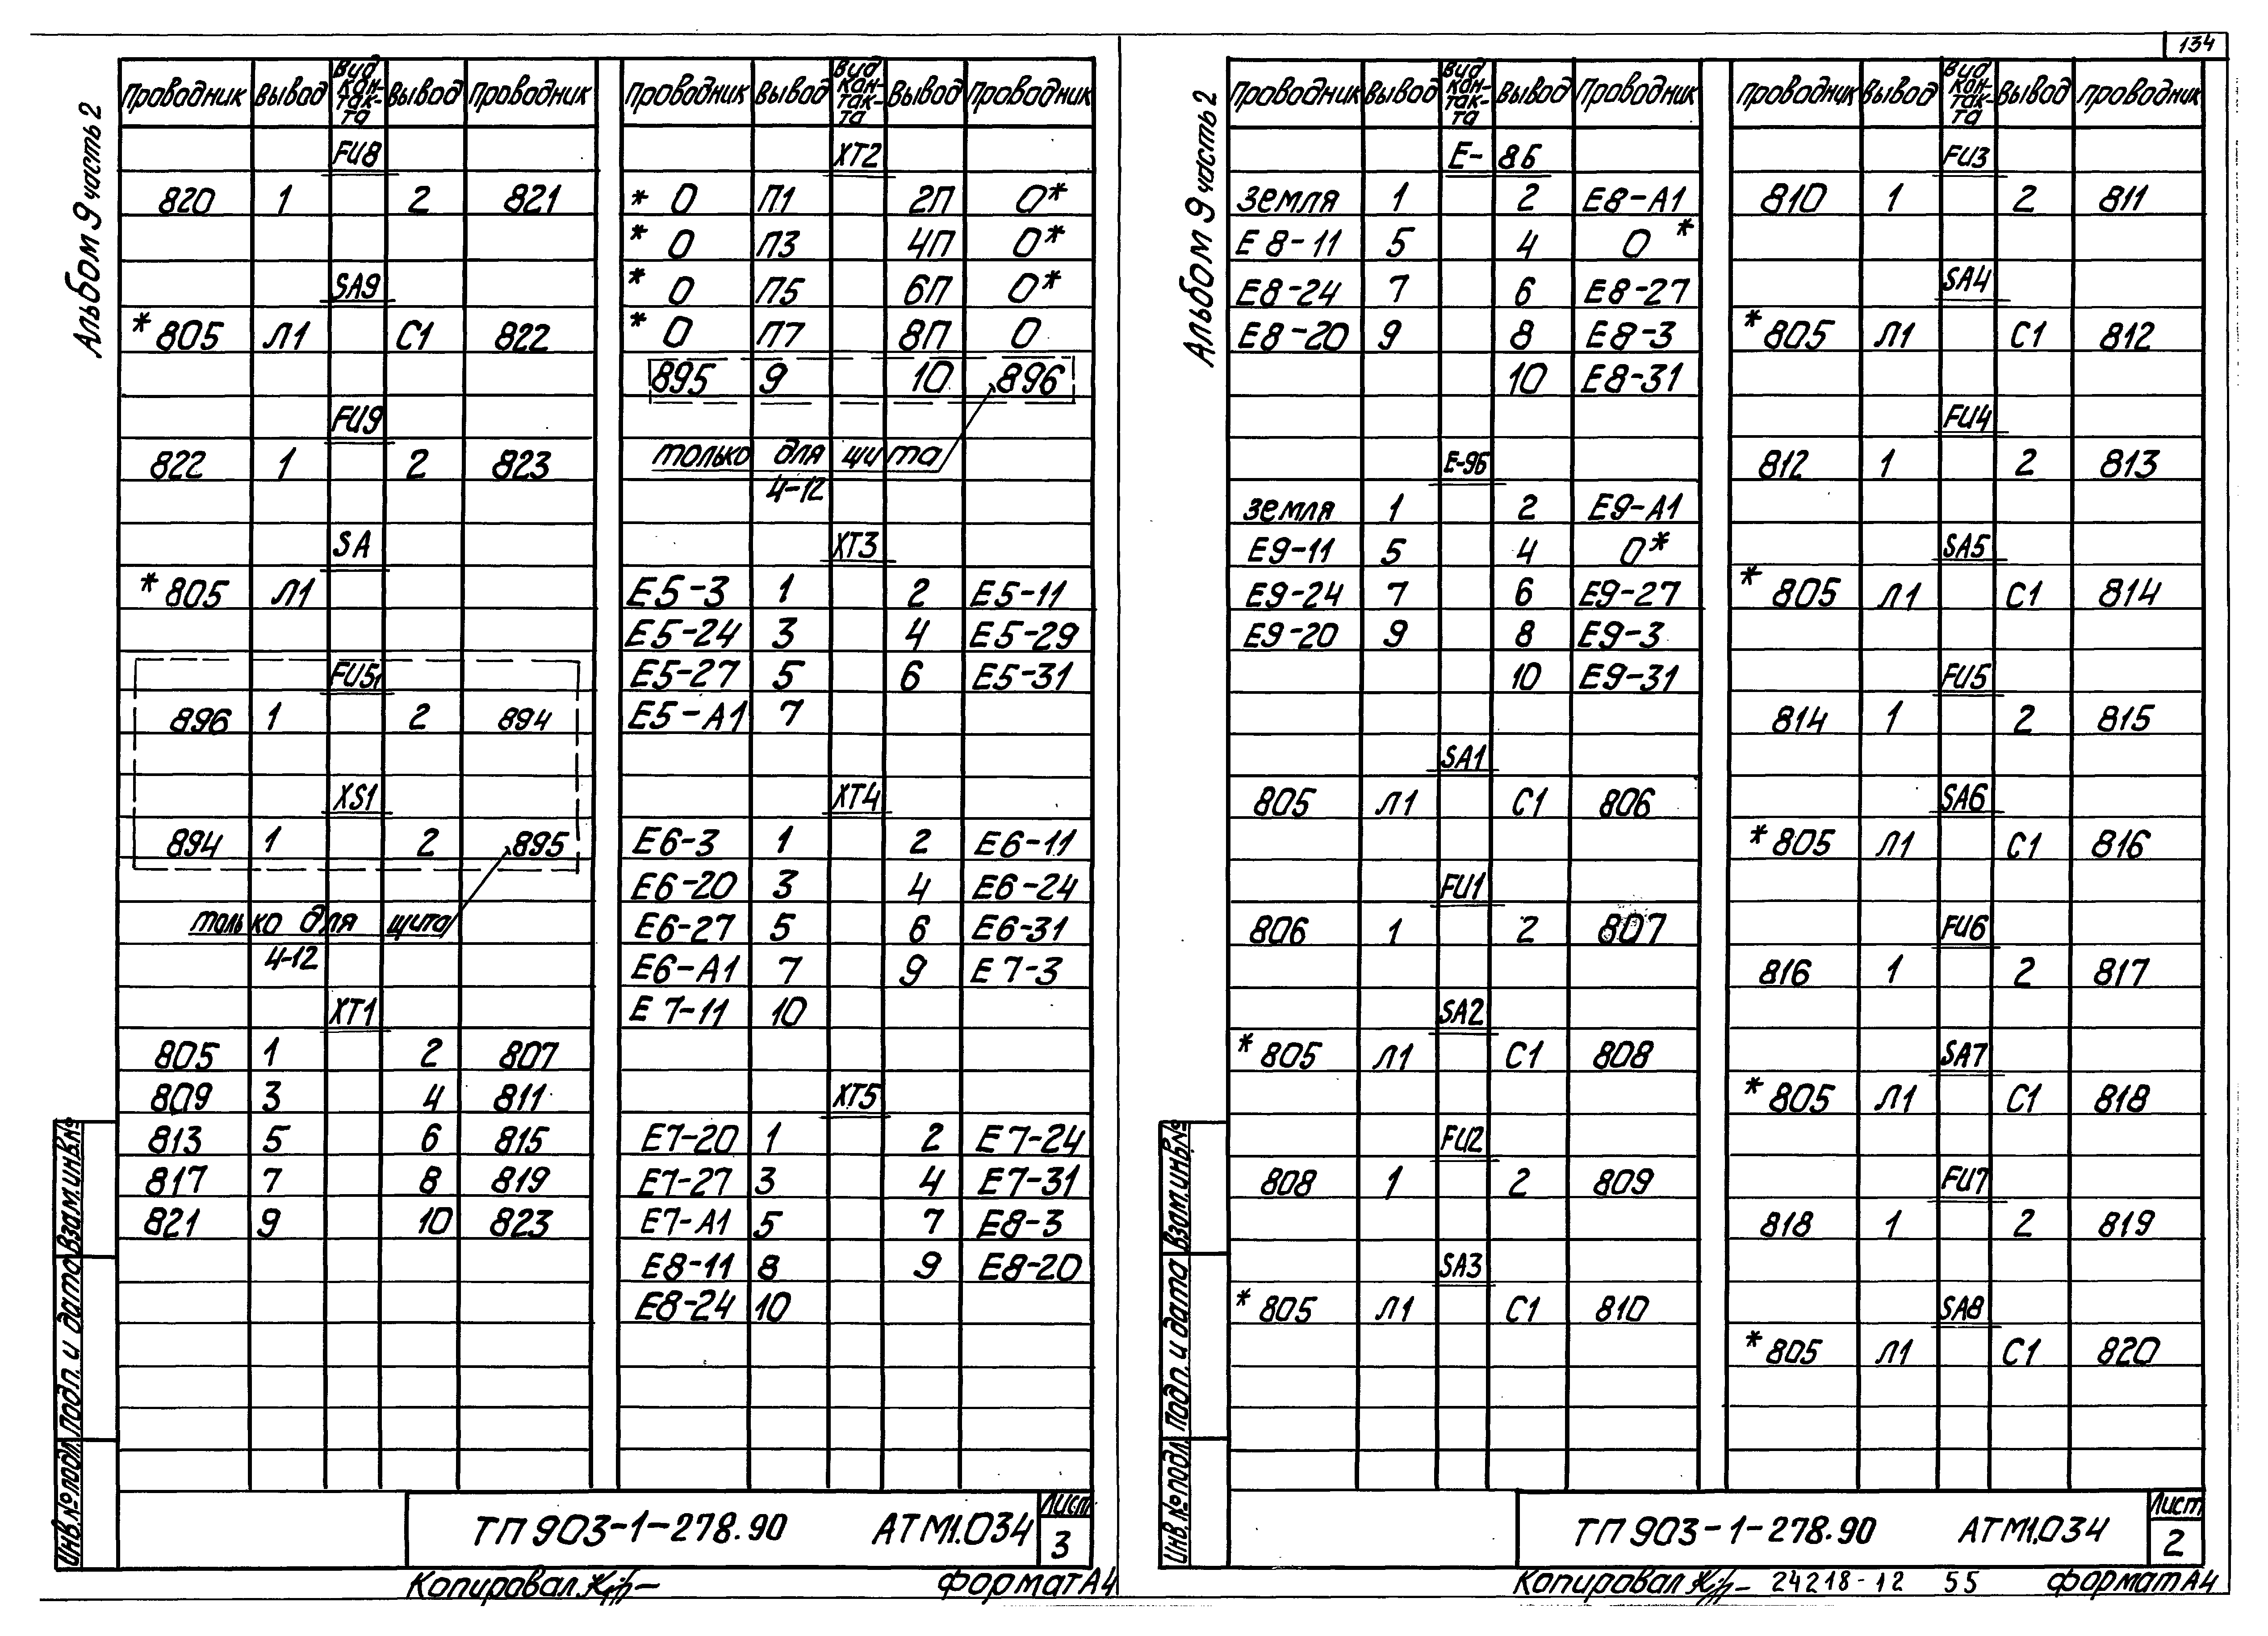 134
Альбом 9 часть 2
Проводник Вывод Вид кон-так-та Вывод Проводник
FU8
820 1 2 821
SA9
*805 Л1 С1 822
FU9
822 1 2 823
SA
*805 Л1
FU51
896 1 2 894
XS1
894 1 2 895
только для щита
4-12
XT1
805 1 2 807
809 3 4 811
813 5 6 815
817 7 8 819
821 9 10 823
Проводник Вывод Вид кон-так-та Вывод Проводник
XT2
* 0 П1 2П 0*
* 0 П3 4П 0*
* 0 П5 6П 0*
* 0 П7 8П 0
895 9 10 896
только для щита
4-12
XT3
E5-3 1 2 E5-11
E5-24 3 4 E5-29
E5-27 5 6 E5-31
E5-A1 7
XT4
E6-3 1 2 E6-11
E6-20 3 4 E6-24
E6-27 5 6 E6-31
E6-A1 7 9 E7-3
E7-11 10
XT5
E7-20 1 2 E7-24
E7-27 3 4 E7-31
E7-A1 5 7 E8-3
E8-11 8 9 E8-20
E8-24 10
Инв.№подл. Подп. и дата Взам.инв.№
ТП 903-1-278.90 АТМ1.034
Лист
3
Копировал
Формат А4
Альбом 9 часть 2
Проводник Вывод Вид кон-так-та Вывод Проводник
E-8Б
Земля 1 2 E8-A1
E8-11 5 4 0 *
E8-24 7 6 E8-27
E8-20 9 8 E8-3
10 E8-31
E-9Б
Земля 1 2 E9-A1
E9-11 5 4 0*
E9-24 7 6 E9-27
E9-20 9 8 E9-3
10 E9-31
SA1
805 Л1 С1 806
FU1
806 1 2 807
SA2
*805 Л1 С1 808
FU2
808 1 2 809
SA3
*805 Л1 С1 810
Проводник Вывод Вид кон-так-та Вывод Проводник
FU3
810 1 2 811
SA4
*805 Л1 С1 812
FU4
812 1 2 813
SA5
*805 Л1 С1 814
FU5
814 1 2 815
SA6
*805 Л1 С1 816
FU6
816 1 2 817
SA7
*805 Л1 С1 818
FU7
818 1 2 819
SA8
*805 Л1 С1 820
Инв.№подл. Подп. и дата Взам.инв.№
ТП 903-1-278.90 АТМ1.034
Лист
2
Копировал
24218-12 55
Формат А4